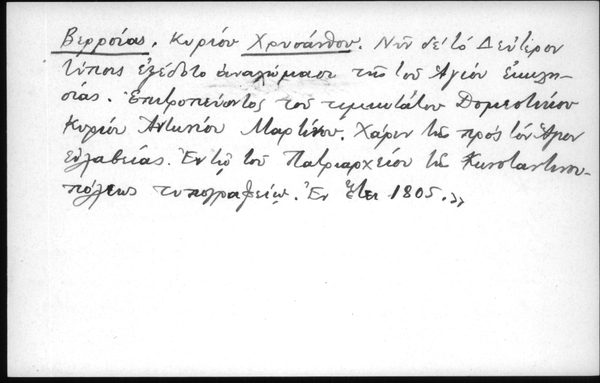 Βερροίας. Κυρίου Χρυσάνθου. Νῦν δὲ τὸ Δεύτερον
τύποις ἐξέδοτο ἀναλώμασι τῆς τοῦ Ἁγίου Ἐκκλη-
σίας. Ἐπιτροπεύοντος τοῦ τιμιωτάτου Δομεστίκου
Κυρίου Ἀντωνίου Μαρτίνου. Χάριν τῆς πρὸς τὸν Ἅγιον
εὐλαβείας. Ἐν τῷ τοῦ Πατριαρχείου τῆς Κωνσταντινου-
πόλεως τυπογραφείῳ. Ἐν ἔτει 1805.»